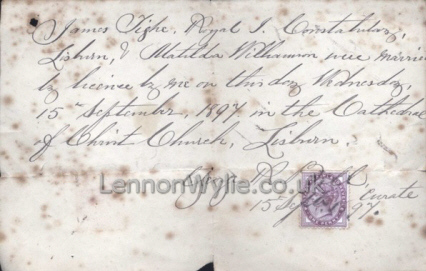 James Tighe, Royal I. Constabulary,
Lisburn, & Matilda Williamson were married
by licence by me on this day, Wednesday,
15th September, 1897 in the Cathedral
of Christ Church, Lisburn.
LennonWylie.co.uk
Curate
15 Sept 97.